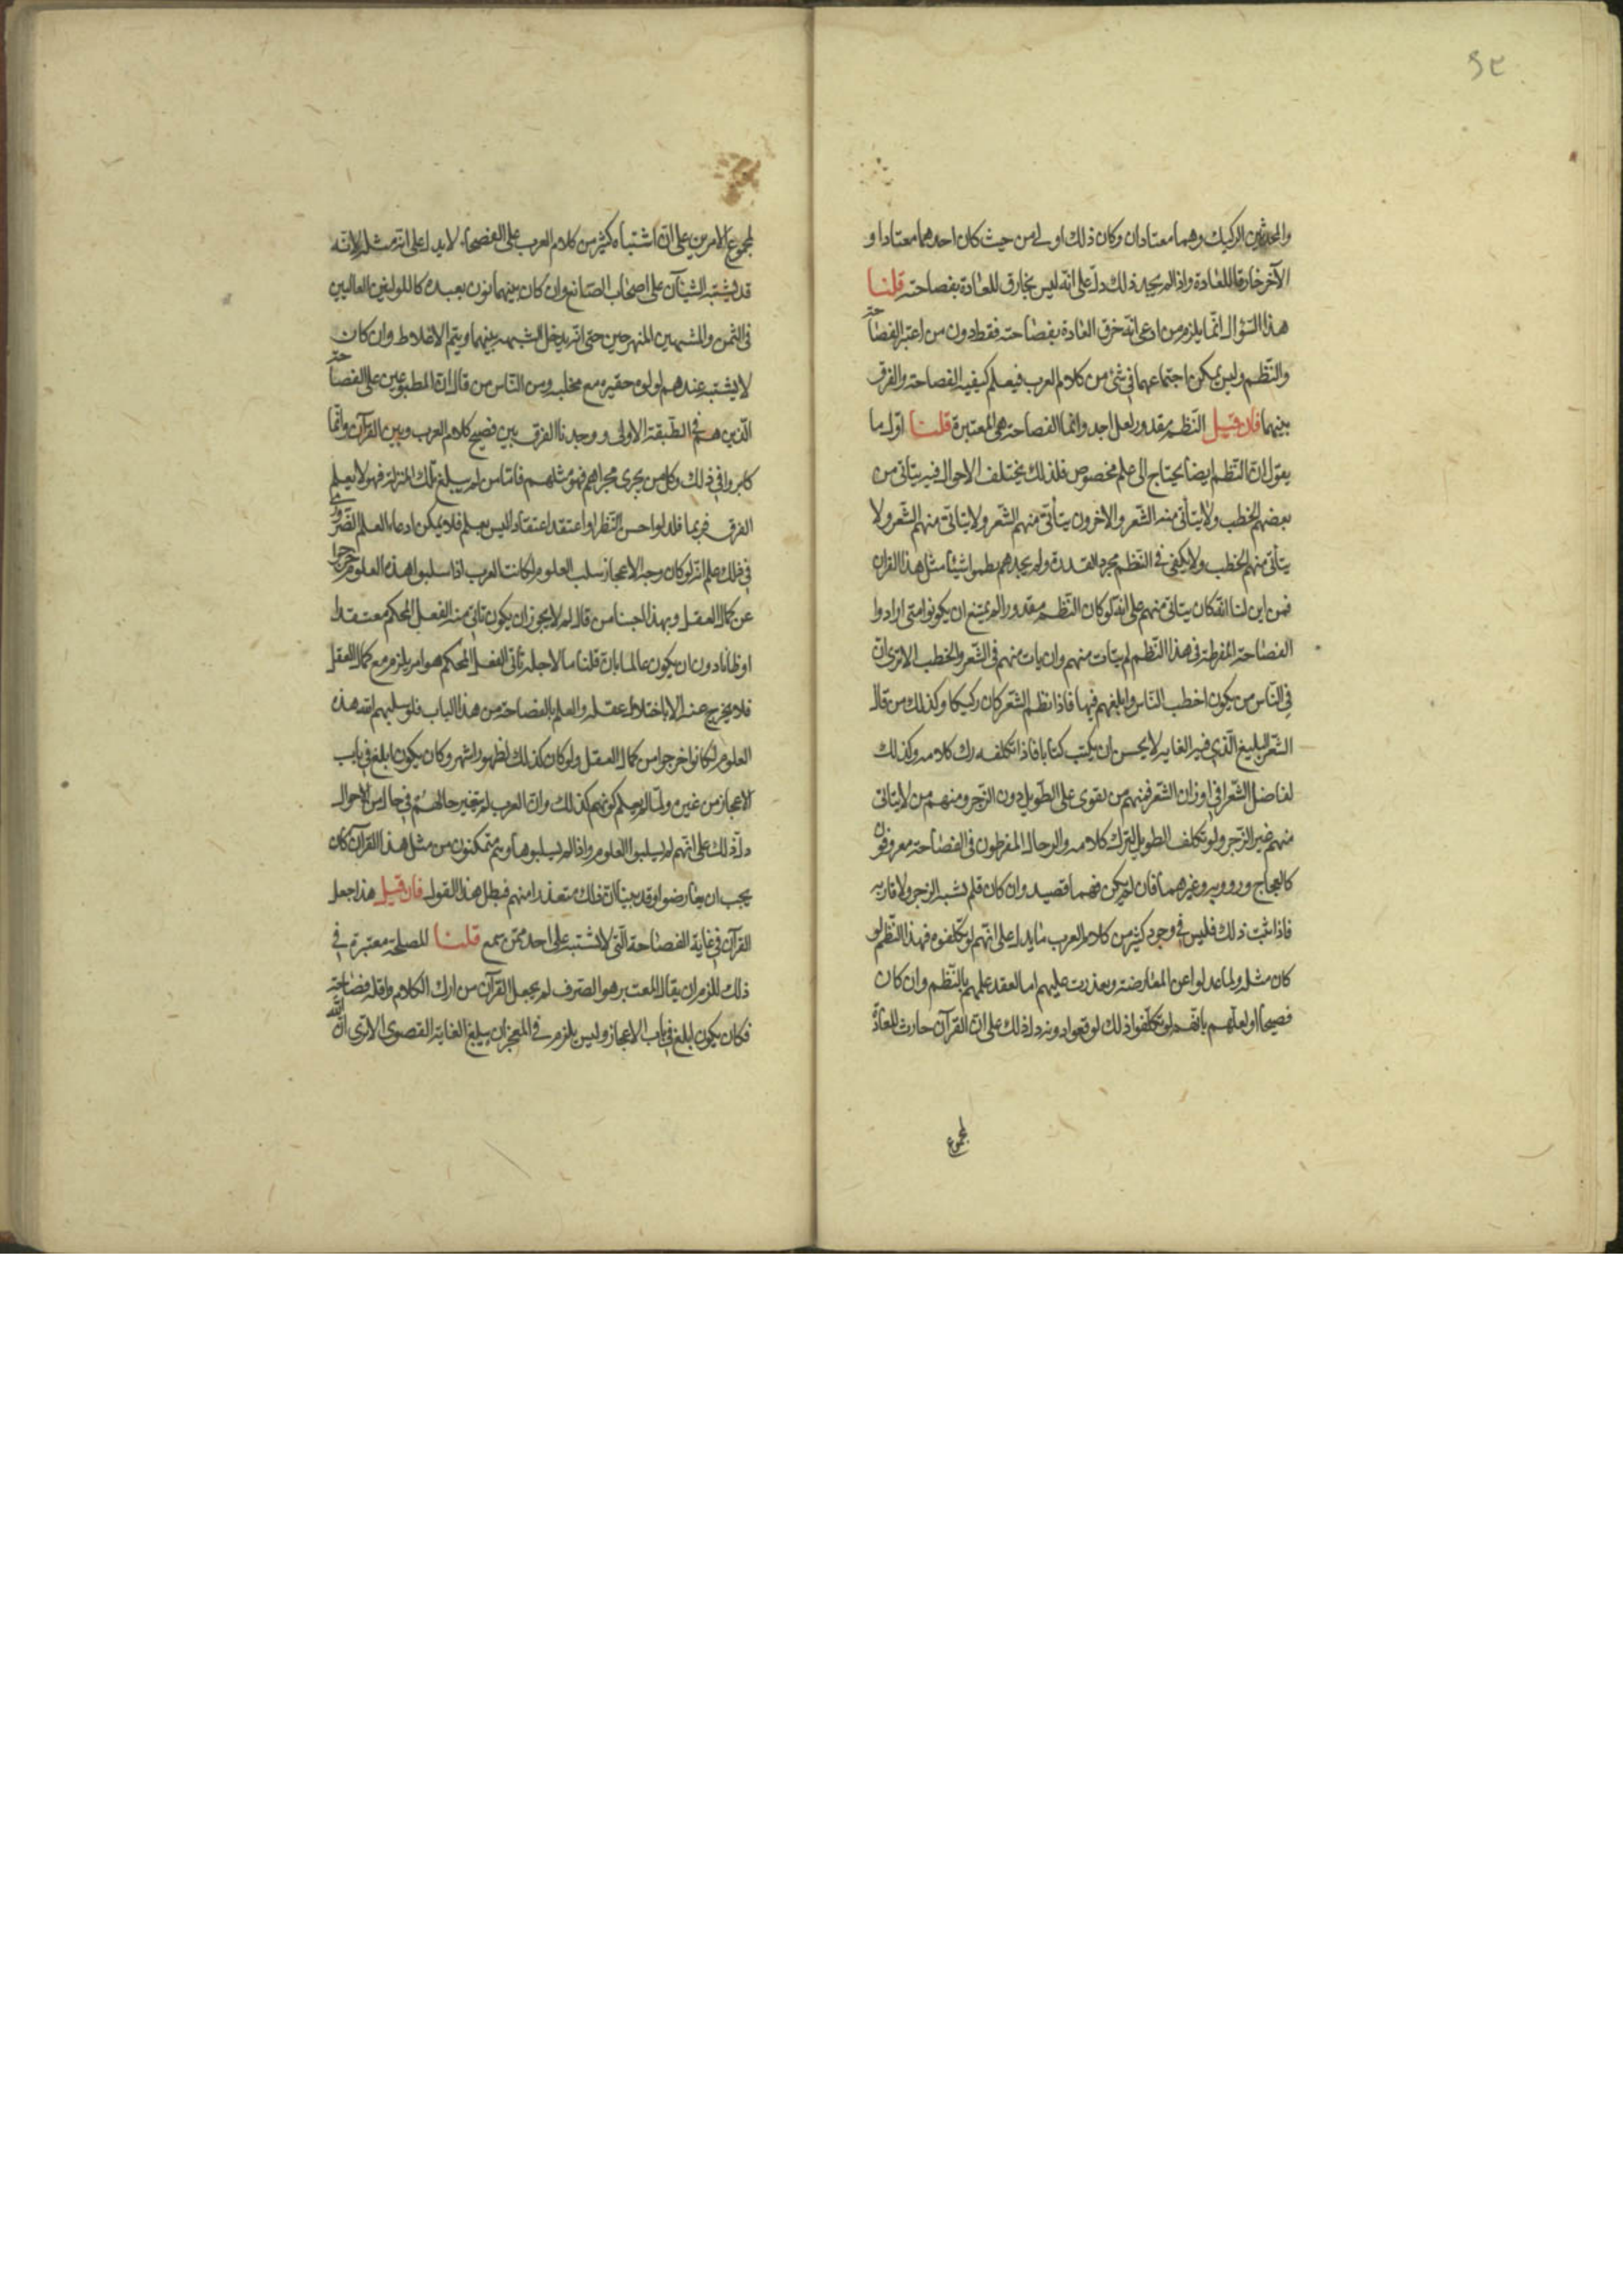 والمحدثين الركيك وهما معتادان وكان ذلك اولى من حيث كان احدهما معتادا و
الآخر خارقا للعادة واذا لم يجد ذلك دلّ على انّه ليس بخارق للعادة بفصاحته قلنا
هذا السّؤال انّما يلزم من ادعى انّه خرق العادة بفصاحته فقط دون من اعتبر الفصاحة
والنّظم وليس يمكن اجتماعهما في شئ من كلام العرب فيعلم كيفية الفصاحة والفرق
بينهما فان قيل النّظم مقدور لكل احد وانما الفصاحة هي المعتبرة قلنا اوّل ما
يقول انّ النّظم ايضا يحتاج الى علم مخصوص فلذلك يختلف الاحوال فيه يتاتى من
بعضهم الخطب ولا يتأتى منه الشّعر والاخرون يتأتى منهم الشّعر ولا يتاتى منهم الشّعر ولا
يتأتى منهم الخطب ولا يكفي في النّظم مجرد القدرة ولم يجدهم نظموا شيئا مثل هذا القران
فمن اين لنا انّه كان يتاتى منهم على انّه لو كان النّظم مقدورا لم يمتنع ان يكونوا متى ارادوا
الفصاحة المفرطة في هذا النّظم لم يتات منهم وان يات منهم في الشّعر والخطب الا ترى انّ
في النّاس من يكون اخطب النّاس وابلغهم فيها فاذا نظم الشّعر كان ركيكا وكذلك من قال
الشّعر البليغ الّذي فيه الغاية لا يحسن ان يكتب كتابا فاذا تكلفه رك كلامه وكذلك
لفاضل الشّعر في اوزان الشعر فمنهم من يقوى على الطّويل دون الرّجز ومنهم من لا يتاتى
منهم غير الرّجز ولو تكلف الطويل لترك كلامه والرجال المفرطون في الفصاحة معروفون
كالعجاج وروبه وغيرهما فان لم يكن فهما قصيد وان كان قلم يشبه الرجز ولا قاربه
فاذا ثبت ذلك فليس في وجود كثير من كلام العرب ما يدل على انّهم لو تكلفوه فهذا النّظم لو
كان مثله ولما عدلوا عن المعارضة وتعذرت عليهم اما لفقد علمهم بالنّظم وان كان
فصيحا او لعلمهم بانّهم لو تكلّفوا ذلك لوقعوا دونه دل ذلك على انّ القرآن خارق للعادة
لمجموع
لمجموع الامرين على انّ اشتباه كثير من كلام العرب على الفصحاء لا يدل على انّه مثله لانّه
قد يشتبه الشيئان على اصحاب الصّنائع وان كان بينهما بون بعيد كاللولوتين الغاليين
في الثّمن والمشبهين المنهرجين حتى انّه يدخل الشبهة بينهما ويتم الاغلاط وان كان
لا يشتبه عندهم لولوة حقيرة مع مخلبه ومن النّاس من قال انّ المطبوعين على الفصاحة
الّذين هم في الطّبقة الاولى ووجدنا الفرق بين فصيح كلام العرب وبين القرآن وانّما
كابروا في ذلك وكل من يجرى مجراهم فهو مثلهم فامّا من لم يبلغ تلك المنزلة فهو لا يعلم
الفرق فربما قلدوا حسن النّظر او اعتقد اعتقادا ليس بعلم فلا يمكن ادعاء العلم الضّروري
في ذلك على انّه لو كان وجه الاعجاز سلب العلوم لكانت العرب اذا سلبوا هذه العلوم خرجوا
عن كمال العقل وبهذا اجبنا من قال لم لا يجوز ان يكون تاتي منه الفعل المحكم معتقدا
او ظانا دون ان يكون عالما بان قلنا ما لاجله تأتى الفعل المحكم هو امر يلزم مع كمال العقل
فلا يخرج عنه الا باختلال عقله والعلم بالفصاحة من هذا الباب فلو سلبهم الله هذه
العلوم لكانوا خرجوا من كمال العقل ولو كان كذلك لظهر واشتهر وكان يكون ابلغ في باب
الاعجاز من غيره ولما لم يعلم كونهم كذلك وانّ العرب لم يتغير حالهم في حال من الاحوال
دلّ ذلك على انّهم لم يسلبوا العلوم واذا لم يسلبوها وهم متمكنون من مثل هذا القرآن كان
يجب ان يعارضوا وقد بينا انّ ذلك متعذر منهم فبطل هذا القول فان قيل هلا جعل
القرآن في غاية الفصاحة الّتي لا تشتبه على احد ممّن سمع قلنا المصلحة معتبرة في
ذلك للزم ان يقال المعتبر هو الصّرف لم يجعل القرآن من ارك الكلام واقله فصاحة
فكان يكون ابلغ في باب الاعجاز وليس يلزم في المعجز ان يبلغ الغاية القصوى الا ترى انّ الله